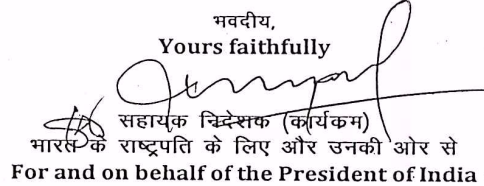 भवदीय,
Yours faithfully
सहायक निदेशक (कार्यकम)
भारत के राष्ट्रपति के लिए और उनकी ओर से
For and on behalf of the President of India